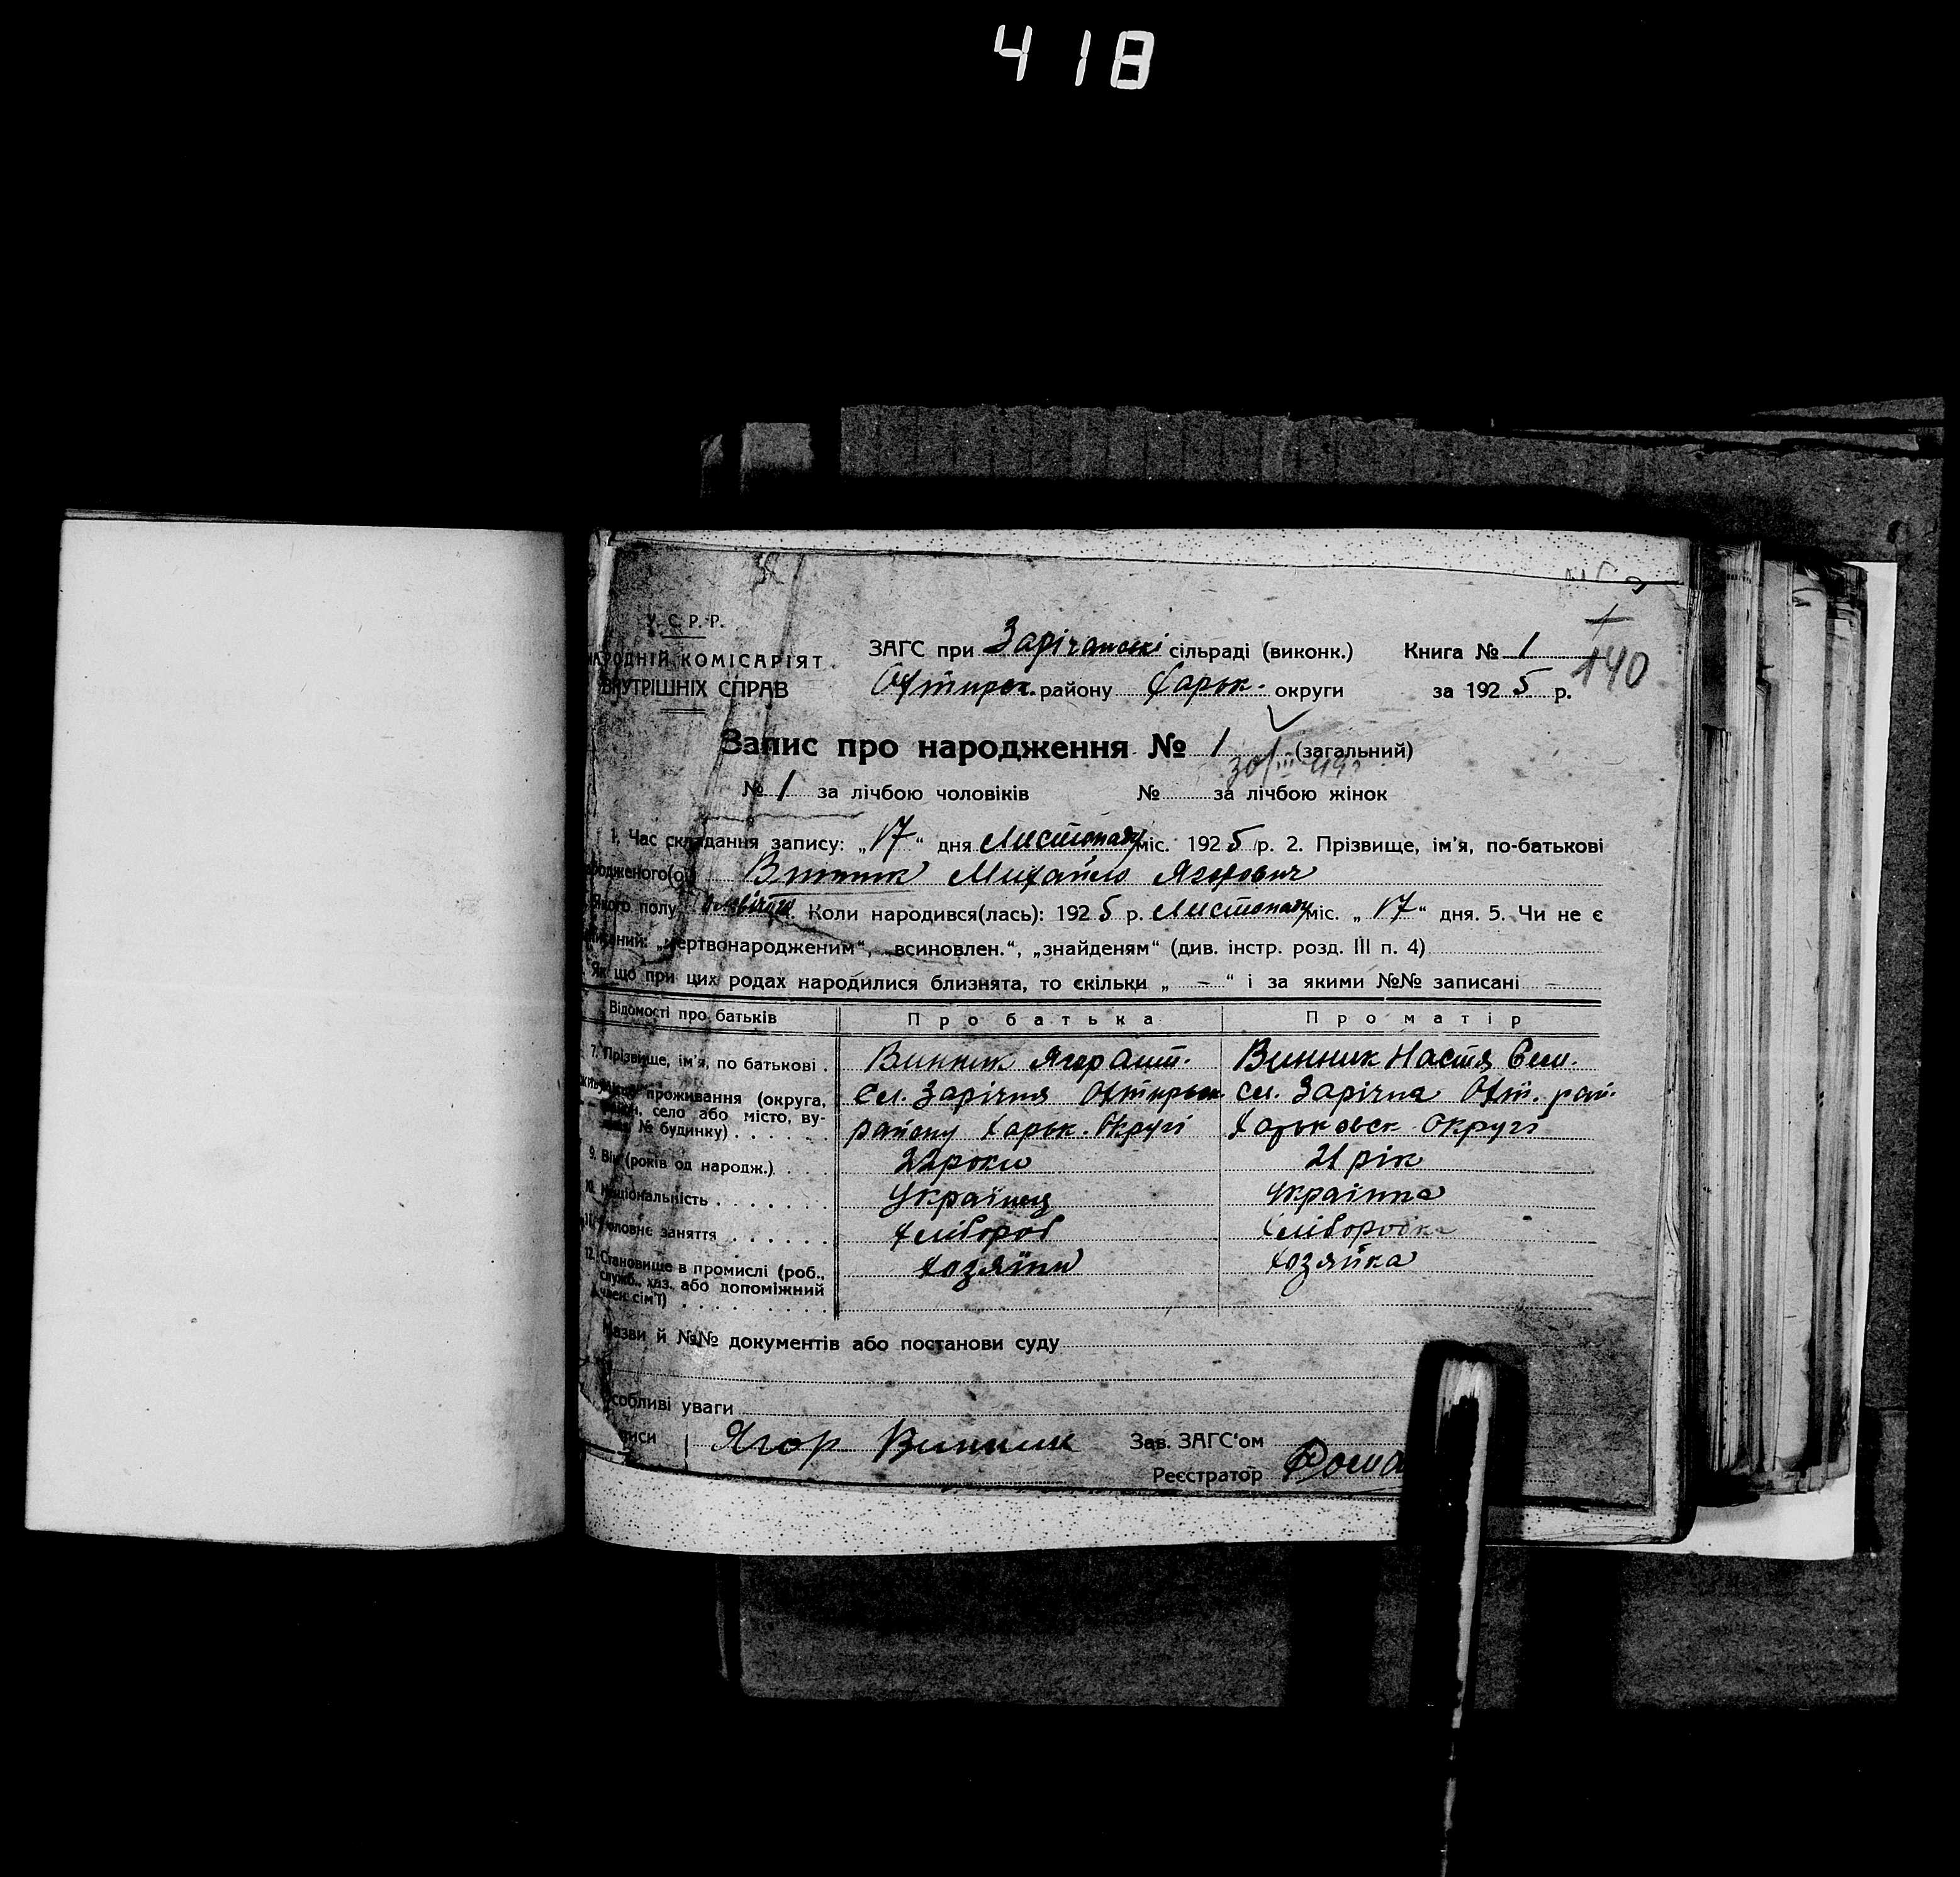 418
У. С. Р. Р.
НАРОДНІЙ КОМІСАРІЯТ
ВНУТРІШНІХ СПРАВ
ЗАГС при Зарічанські сільраді (виконк.) Книга № 1
Охтирск. району Харьк. округи за 1925 р.
140
Запис про народження № 1 (загальний)
№ 1 за лічбою чоловіків № за лічбою жінок
1. Час складання запису: „17“ дня Листопаду міс. 1925 р. 2. Прізвище, ім'я, по-батькові
народженого(ої) Винник Михайло Ягорович
Якого полу Коли народився(лась): 1925 р. Листопаду міс. „17“ дня. 5. Чи не є
„мертвонародженим“, „всиновлен.“, „знайденям“ (див. інстр. розд. III п. 4)
Як що при цих родах народилися близнята, то скільки „ – “ і за якими №№ записані –
Відомості про батьків Про батька Про матір
7. Прізвище, ім'я, по батькові . Винник Ягор Ант. Винник Настя Сем.
проживання (округа, Сл. Зарічня Охтирск. Сл. Зарічна Охт. рай.
село або місто, ву-
№ будинку) . . . . . . району Харьк. Округі Харьковск Округі
9. Вік (років од народж.) . . . 22 роки 21 рік
10. Національність . . . . . . . Українец Українка
11. Головне заняття . . . . . . Хлібороб Хліборобка
12. Становище в промислі (роб., Хозяїин Хозяйка
служб., хаз. або допоміжний
член сім'ї) . . . . . . . . .
Назви й №№ документів або постанови суду
Особливі уваги
Ягор Винник Зав. ЗАГС'ом
Реєстратор